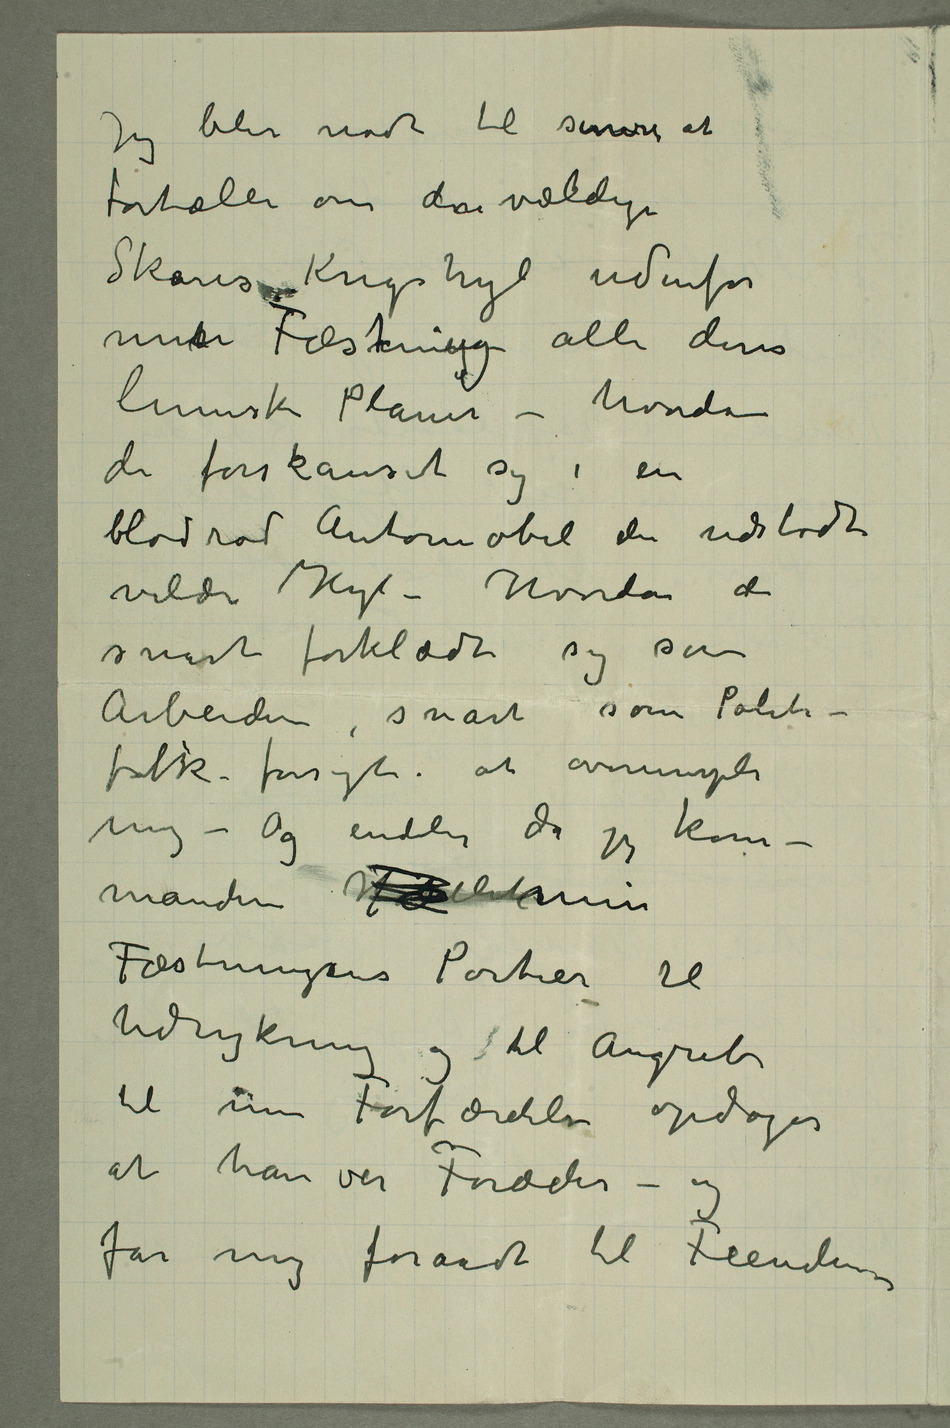 Jeg blir nødt til senere at
fortælle om den vældige
Skares Krigshyl udenfor
min Fæstning alle deres
lumske Planer – hvordan
de forskanset sig i en
blodrød Automobil de udstødte
vilde Hyl – Hvordan de
snart forklædte sig som
Arbeidere, snart som Politi-
folk – forsøgte at overrumple
mig – Og endelig da jeg kom-
manderer min
Fæstningens Portier til
Udrykning og til Angreb
til min Forfærdelse opdager
at han var Foræder – og
far mig foraadt til Fienden